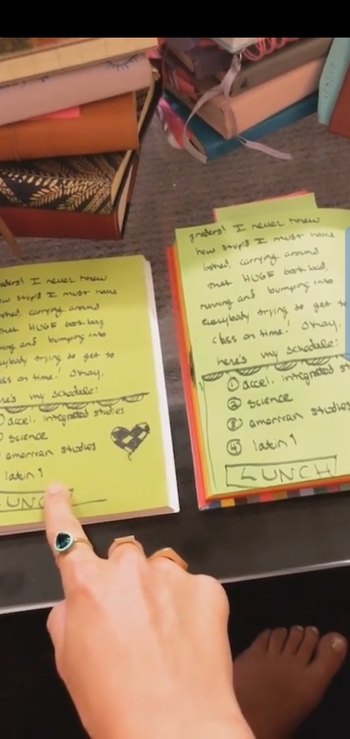 graders! I never knew
how stupid I must have
looked, carrying around
that HUGE book bag,
running and bumping into
everybody trying to get to
class on time! Okay,
here's my schedule:
① accel. integrated st
② science
③ american studies
④ latin 1
LUNCH
aders! I never knew
ow stupid I must have
looked, carrying around
that HUGE book bag
ning and bumping into
erybody trying to get to
ass on time! Okay,
ere's my schedule:
accel. integrated studies
science
american studies
latin 1
LUNCH